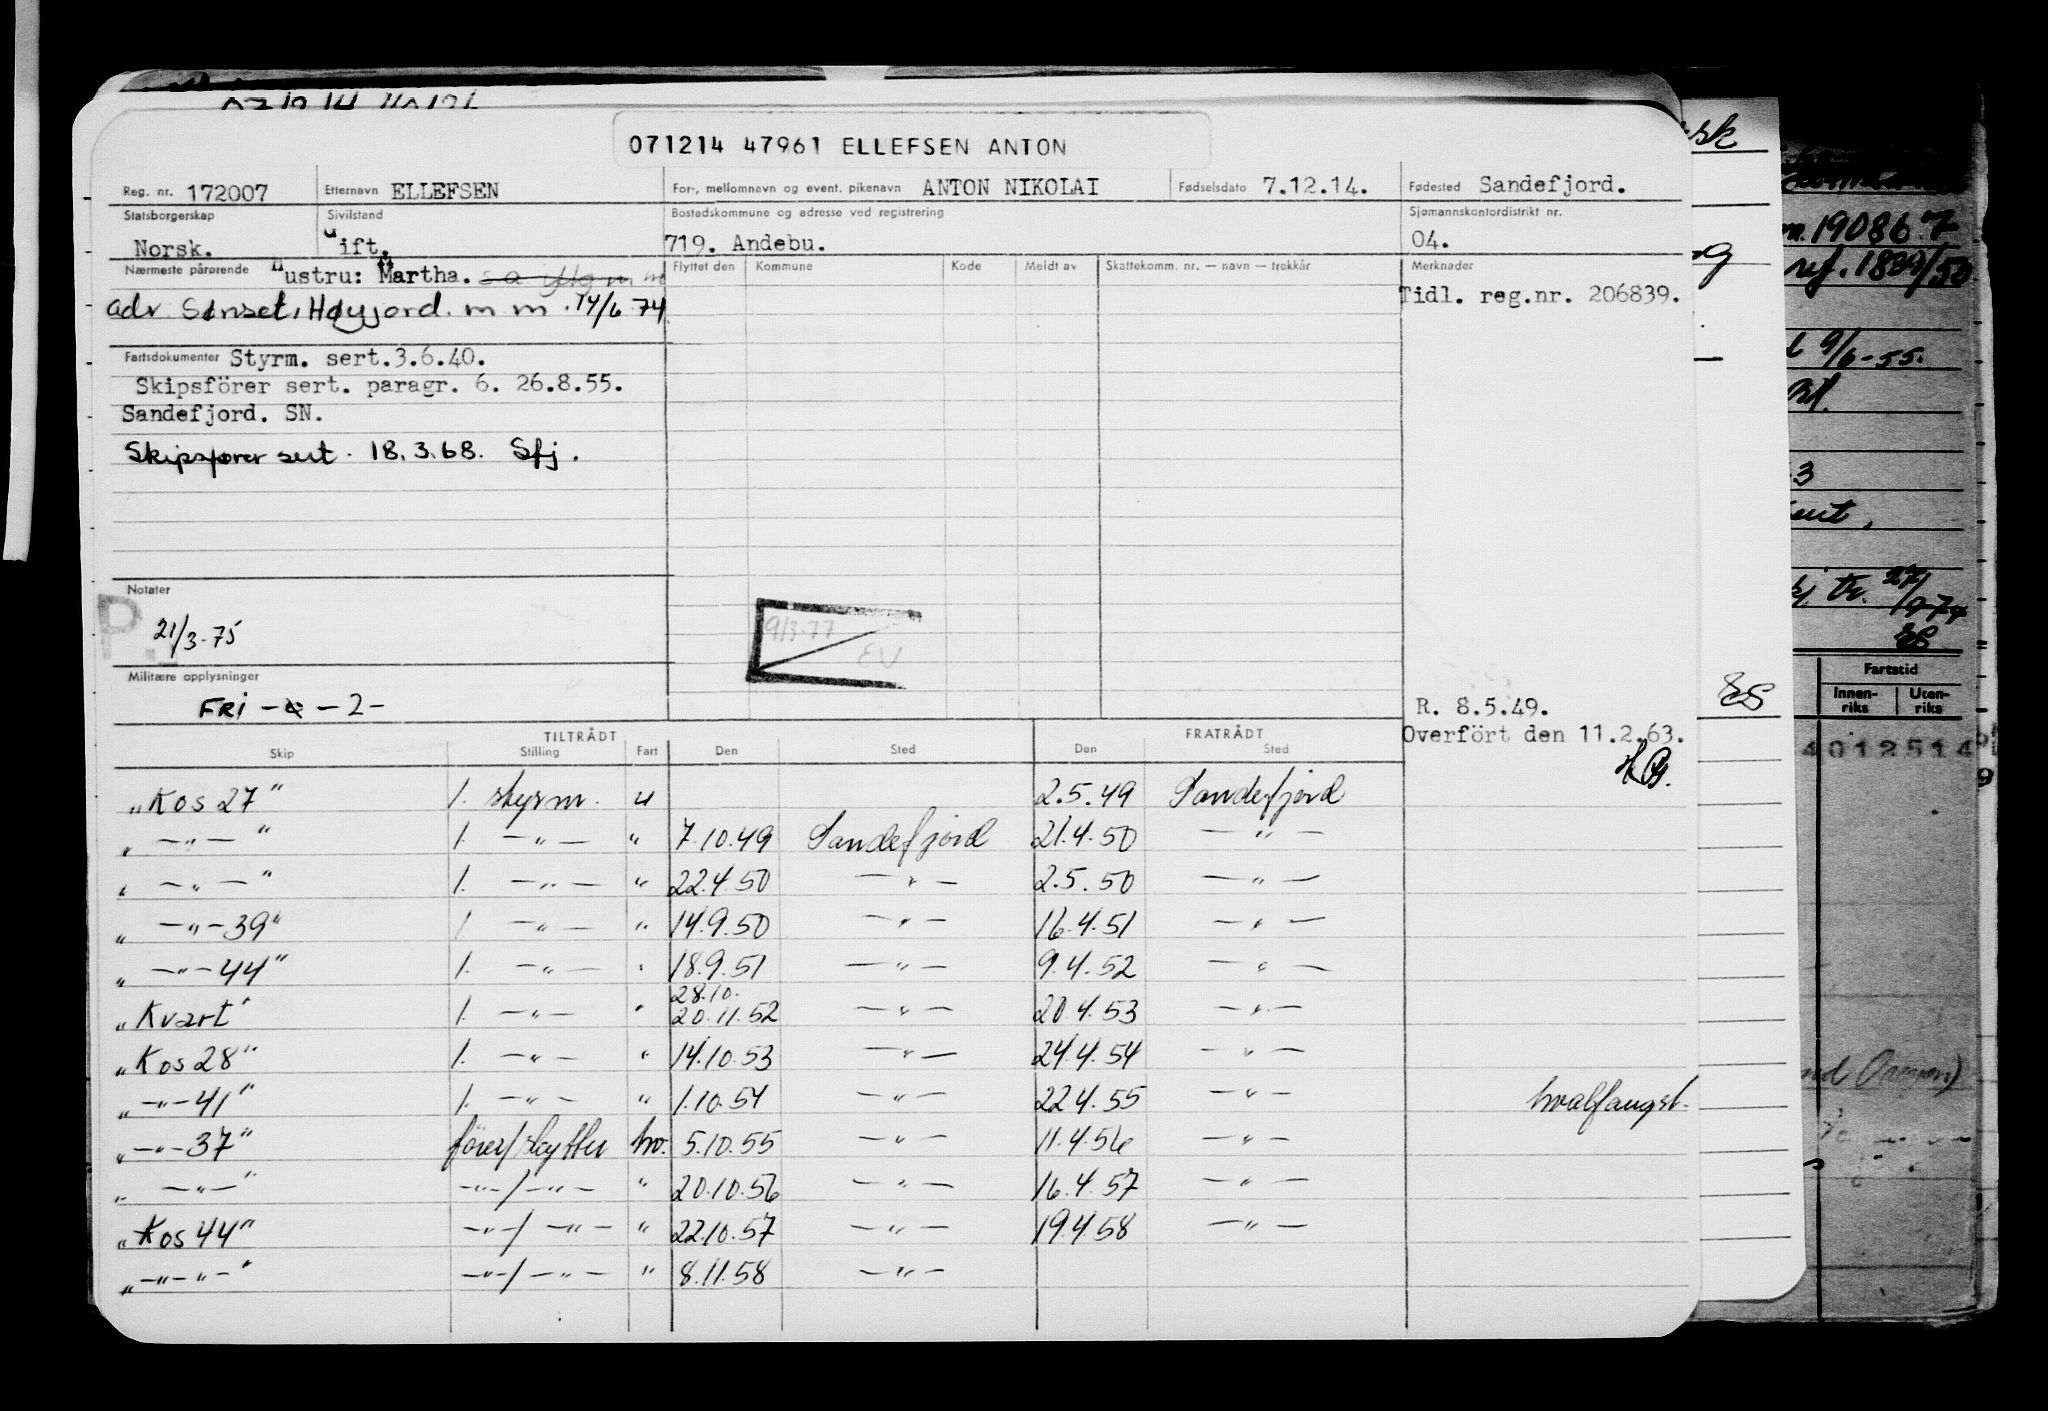 071214 47961 ELLEFSEN ANTON
Reg. nr. 172007 Etternavn ELLEFSEN For-, mellomnavn og event. pikenavn ANTON NIKOLAI Fødselsdato 7.12.14. Fødested Sandefjord.
Statsborgerskap Sivilstand Bostedskommune og adresse ved registrering Sjømannskontordistrikt nr.
Norsk. Gift. 719. Andebu. 04.
Nærmeste pårørende Hustru: Martha. Flyttet den Kommune Kode Meldt av Skattekomm. nr. — navn — trekkår Merknader
Tidl. reg.nr. 206839.
adv. Sønset, Høyjord. m m. 14/6 74
Fartsdokumenter Styrm. sert.3.6.40.
Skipsförer sert. paragr. 6. 26.8.55.
Sandefjord. SN.
Skipsfører sert. 18.3.68. Sfj.
Notater
P.
21/3-75
9/3-77
EV
Militære opplysninger
FRI - - 2 -
R. 8.5.49.
Overfört den 11.2.63.
TILTRÅDT FRATRÅDT
Skip Stilling Fart Den Sted Den Sted
"Kos 27" 1. styrm. u 2.5.49 Sandefjord
" —"— " 1. —"— " 7.10.49 Sandefjord 21.4.50 —"—
" —"— " 1. —"— " 22.4.50 —"— 2.5.50 —"—
" —"—39" 1. —"— " 14.9.50 —"— 16.4.51 —"—
" —"—44" 1. —"— " 18.9.51 —"— 9.4.52 —"—
28.10.
"Kvart" 1. —"— " 20.11.52 —"— 20.4.53 —"—
"Kos 28" 1. —"— " 14.10.53 —"— 24.4.54 —"—
" —"—41" 1. —"— " 1.10.54 —"— 22.4.55 —"— hvalfangst.
" —"—37" fører/skytter hv. 5.10.55 —"— 11.4.56 —"—
" —"— " —"—/—"— " 20.10.56 —"— 16.4.57 —"—
"Kos 44" —"—/—"— " 22.10.57 —"— 19.4.58 —"—
" —"—"— " —"—/—"— " 8.11.58 —"—
ES
19086.7
9/6-55.
27/
ES
Fartstid
Innen-riks Uten-riks
4012514